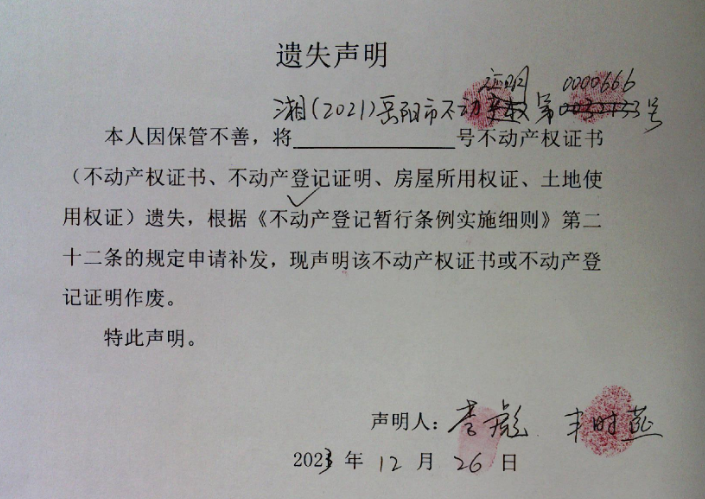 遗失声明
证明 0000666
湘(2021)岳阳市不动产权第0032133号
本人因保管不善，将________________号不动产权证书
（不动产权证书、不动产登记证明、房屋所用权证、土地使
用权证）遗失，根据《不动产登记暂行条例实施细则》第二
十二条的规定申请补发，现声明该不动产权证书或不动产登
记证明作废。
特此声明。
声明人：李彪 丰时燕
2023 年 12 月 26 日